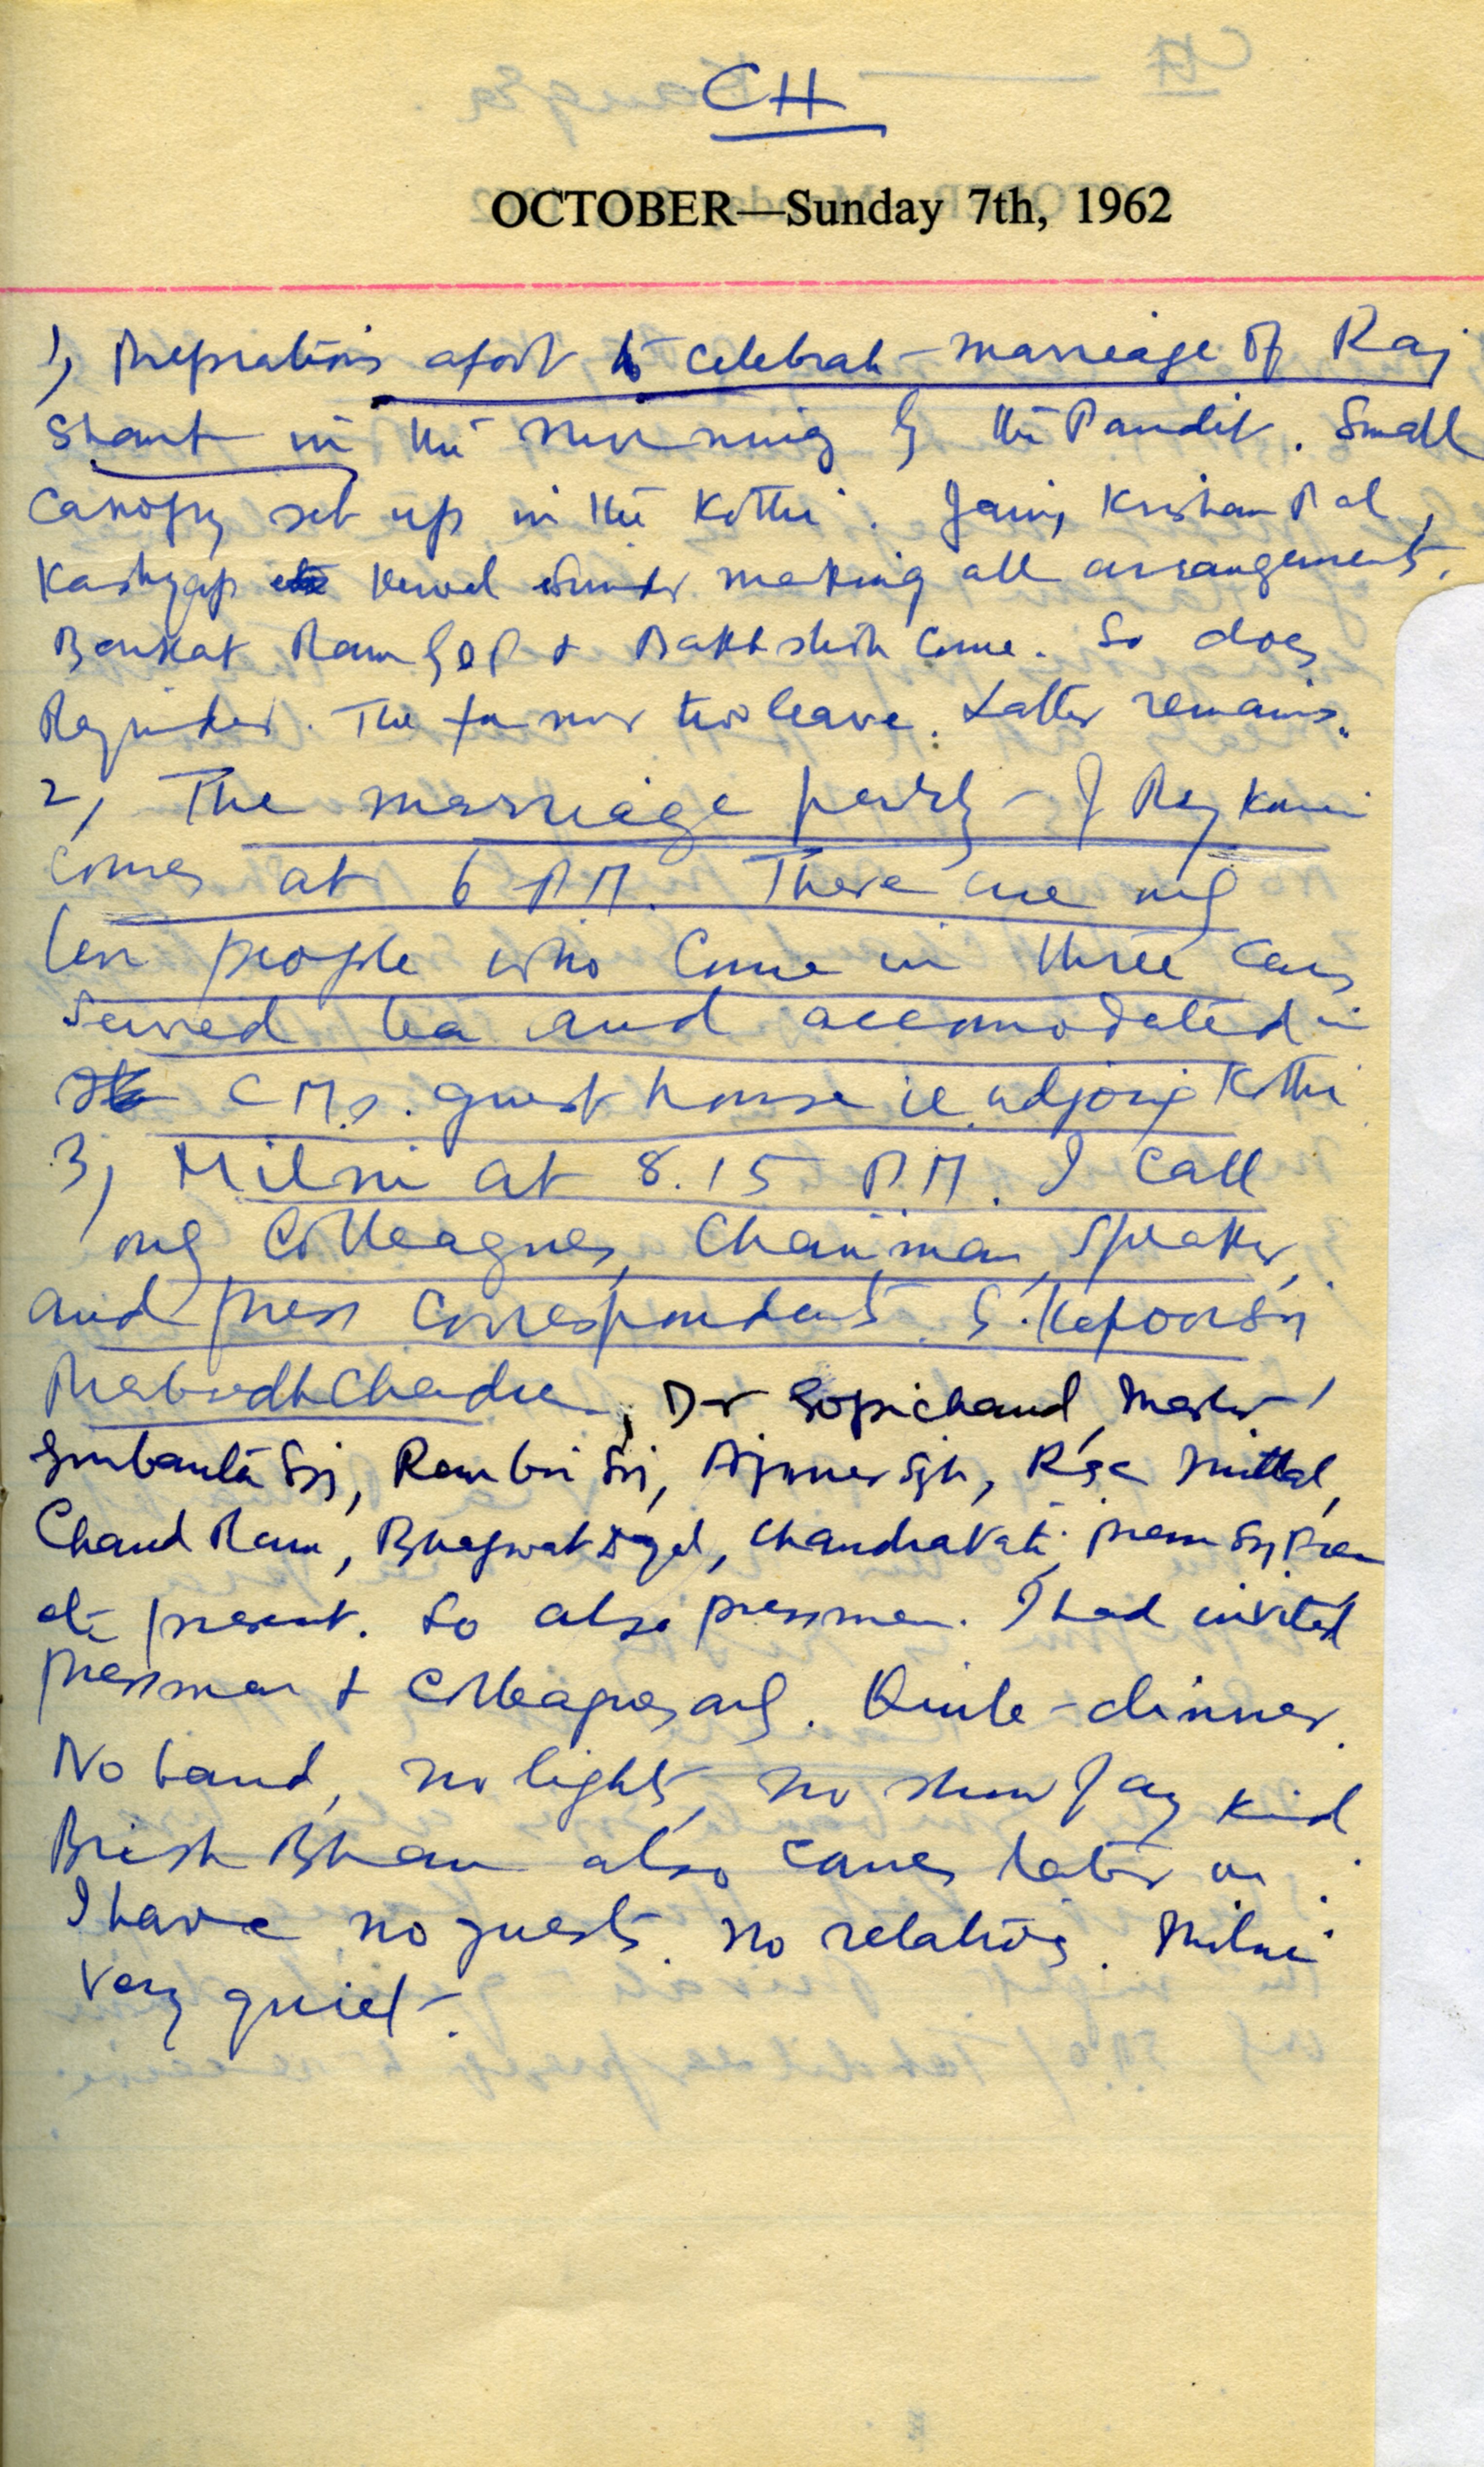 CH
OCTOBER—Sunday 7th, 1962
1, Preprations afoot to celebrate marriage of Raj
start in the morning by the Pandit. Small
canopy set up in the Kothi. Jain, Krishan Pal,
Kashyap Kewal making all arrangements.
Bankat Ram & Bakhshish come. So does
Rajinder. The former two leave. Latter remains.
2, The marriage party of Raj Kumar
comes at 6 P.M. There are only
ten people who come in three cars
served tea and accomodated in
CMs. guest house ie adjoing Kothi
3, Milni at 8.15 P.M. I call
only colleagues, Chairman, Speaker,
and press correspondents. S. Kapoor Sngh
Prabodh Chandra, Dr Gopichand, Master
Gurbanta Sngh, Ranbir Sngh, Ajmer Sgh, Mittal,
Chand Ram, Bhagwat Dyal, Chandravati, Prem Sngh Prem
etc present. So also pressmen. I had invited
pressmen & colleagues only. Quite dinner.
No band, no lights, no show of any kind.
Brish Bhan also comes later on.
I have no guests. No relations. Milni
very quiet.